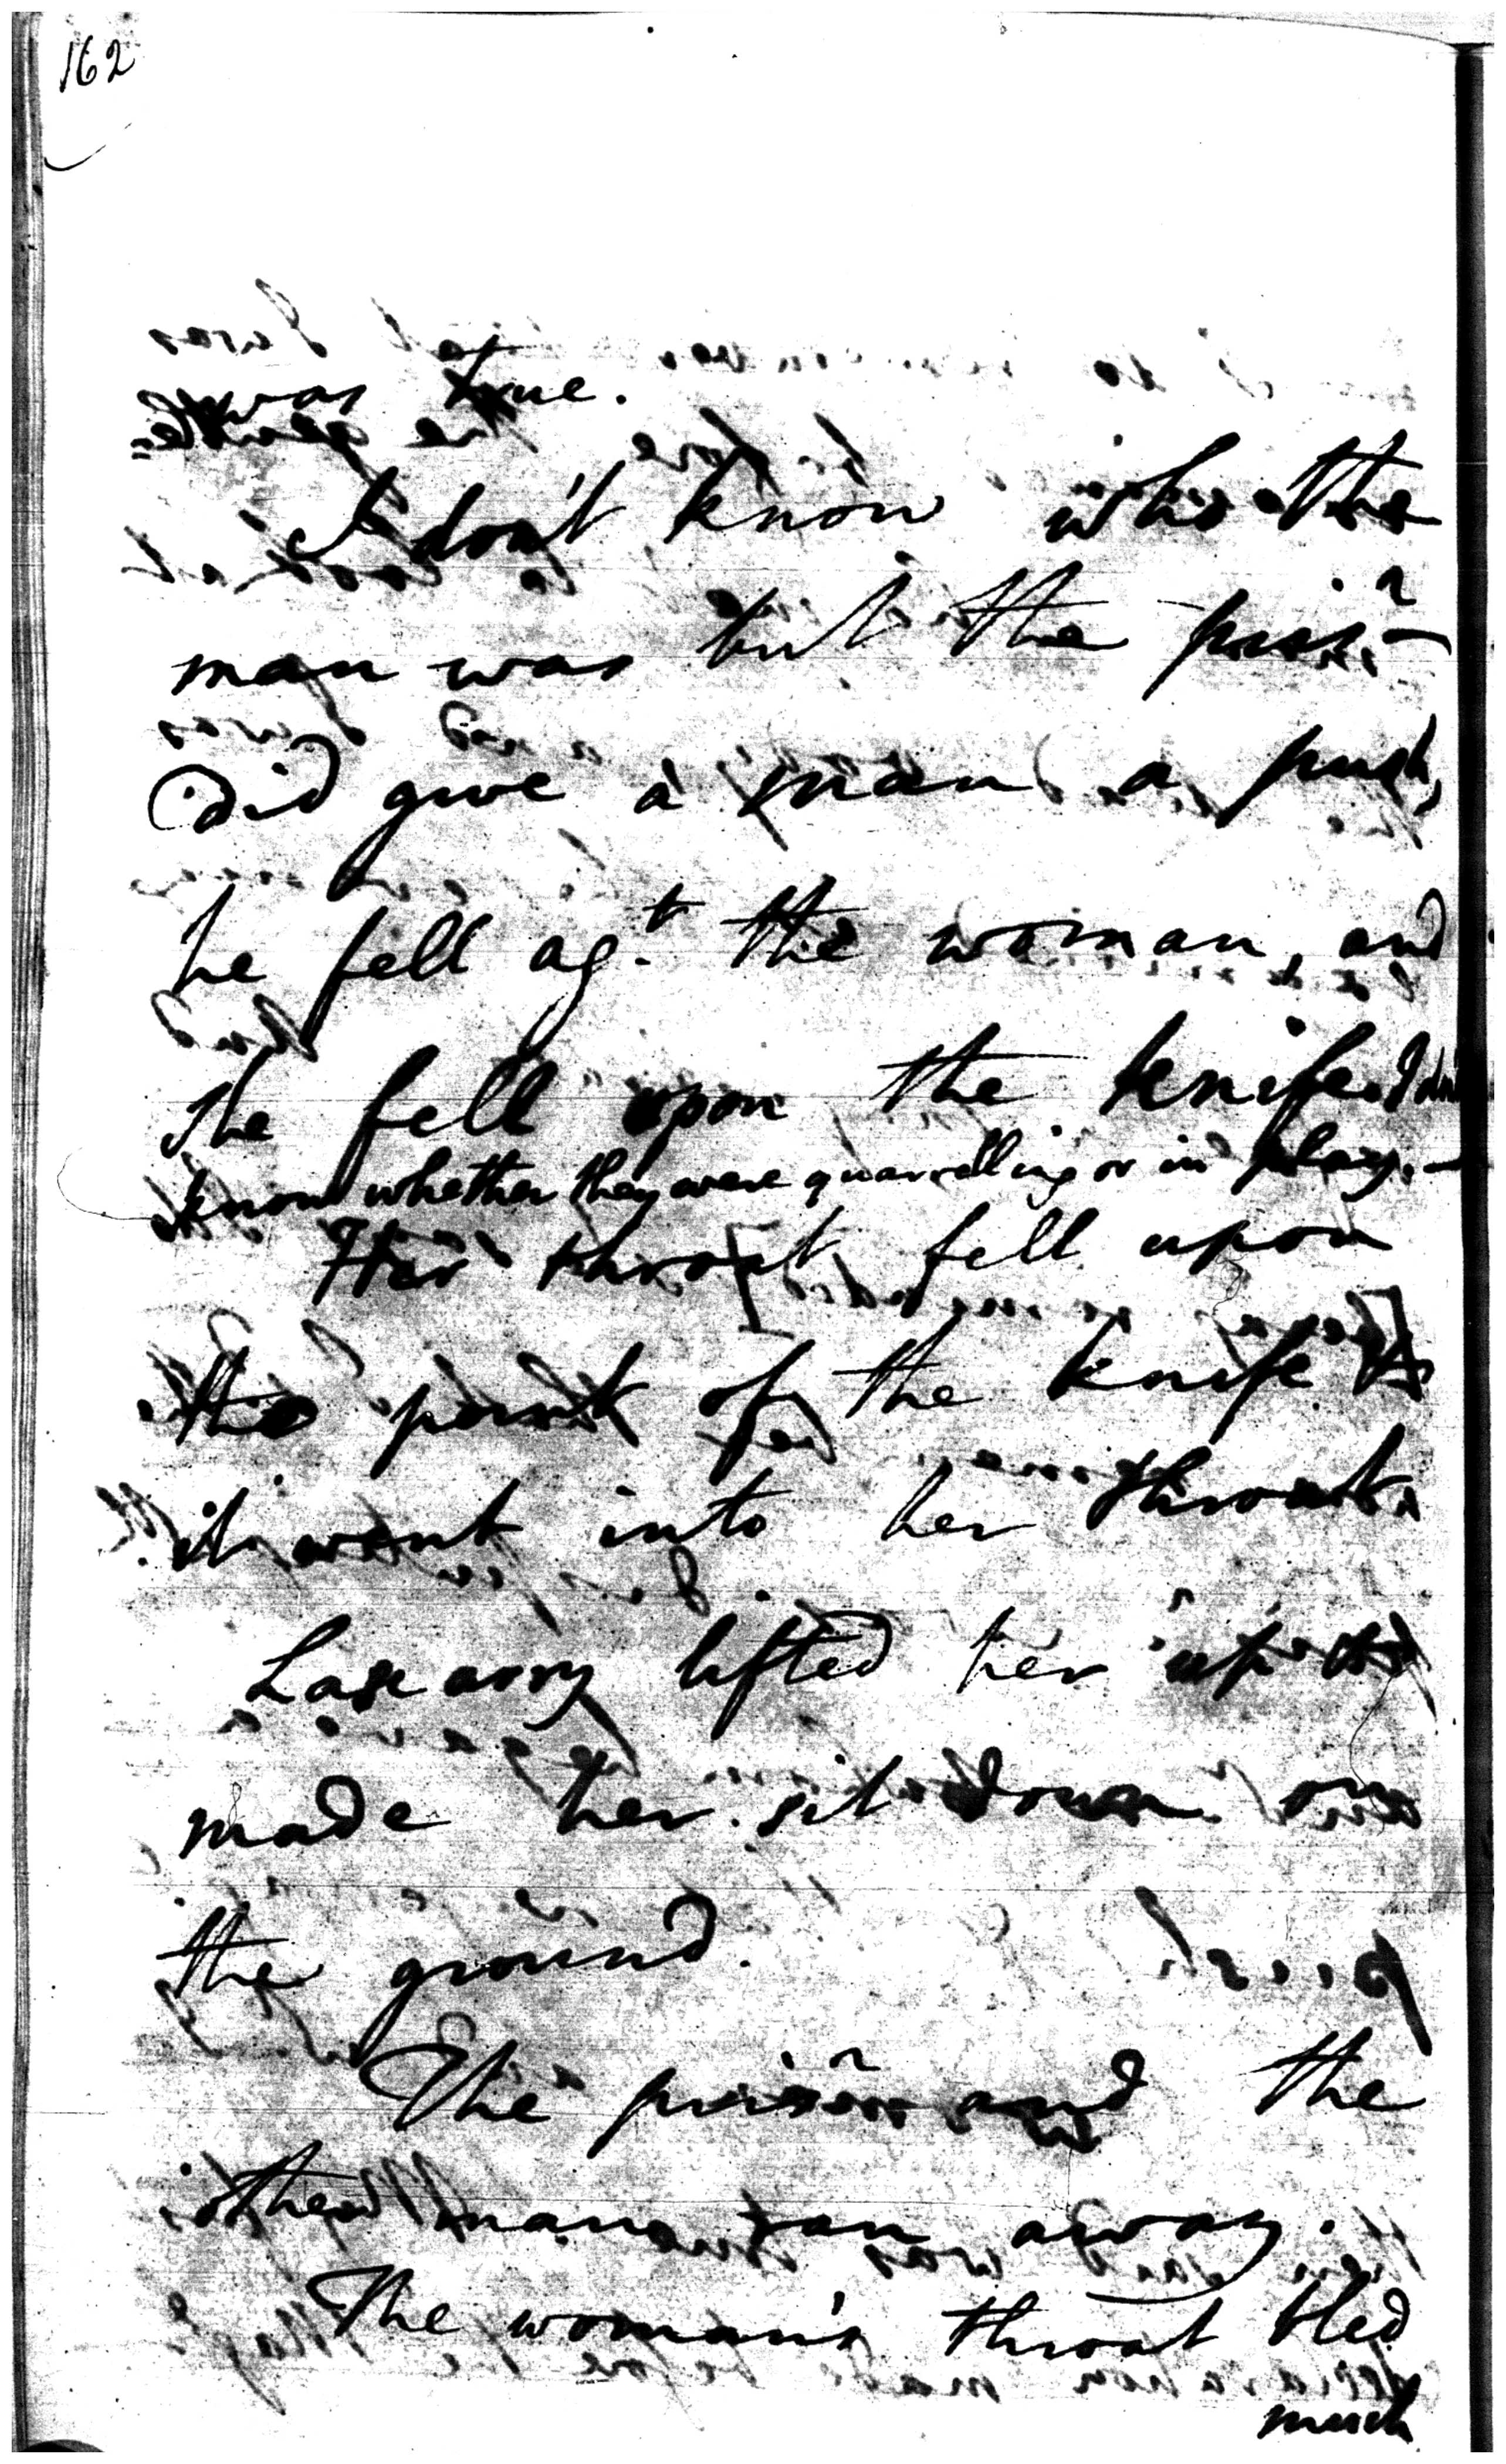 162
was true.
I don't know who the
man was but the prisr
did give a man a push,
he fell agt. the woman, and
she fell upon the knife. I dont
know whether they were quarrelling or in play. —
Her throat fell upon
the point of the knife &
it went into her throat.
lifted her up &
made her sit down on
the ground.
The prisonr and the
other man ran away.
The woman's throat bled
much